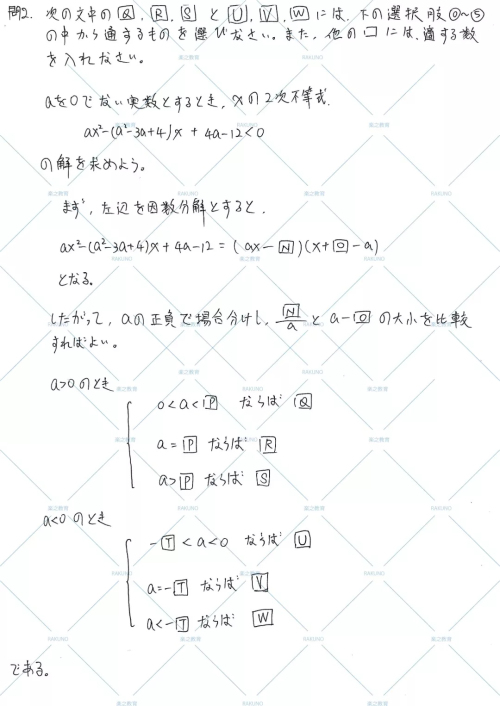 問2. 次の文中の Q, R, S と U, V, W には、下の選択肢⓪~⑤
の中から適するものを選びなさい。また、他の□には、適する数
を入れなさい。
aを0でない実数とするとき、xの2次不等式.
ax²-(a²-3a+4)x + 4a-12<0
の解を求めよう。
まず、左辺を因数分解とすると、
ax²-(a²-3a+4)x + 4a-12 = (ax-N)(x+O-a)
となる。
したがって、aの正負で場合分けし、N/a と a-O の大小を比較
すればよい。
a>0のとき
0<a<P ならば Q
a=P ならば R
a>P ならば S
a<0のとき
-T<a<0 ならば U
a=-T ならば V
a<-T ならば W
である。